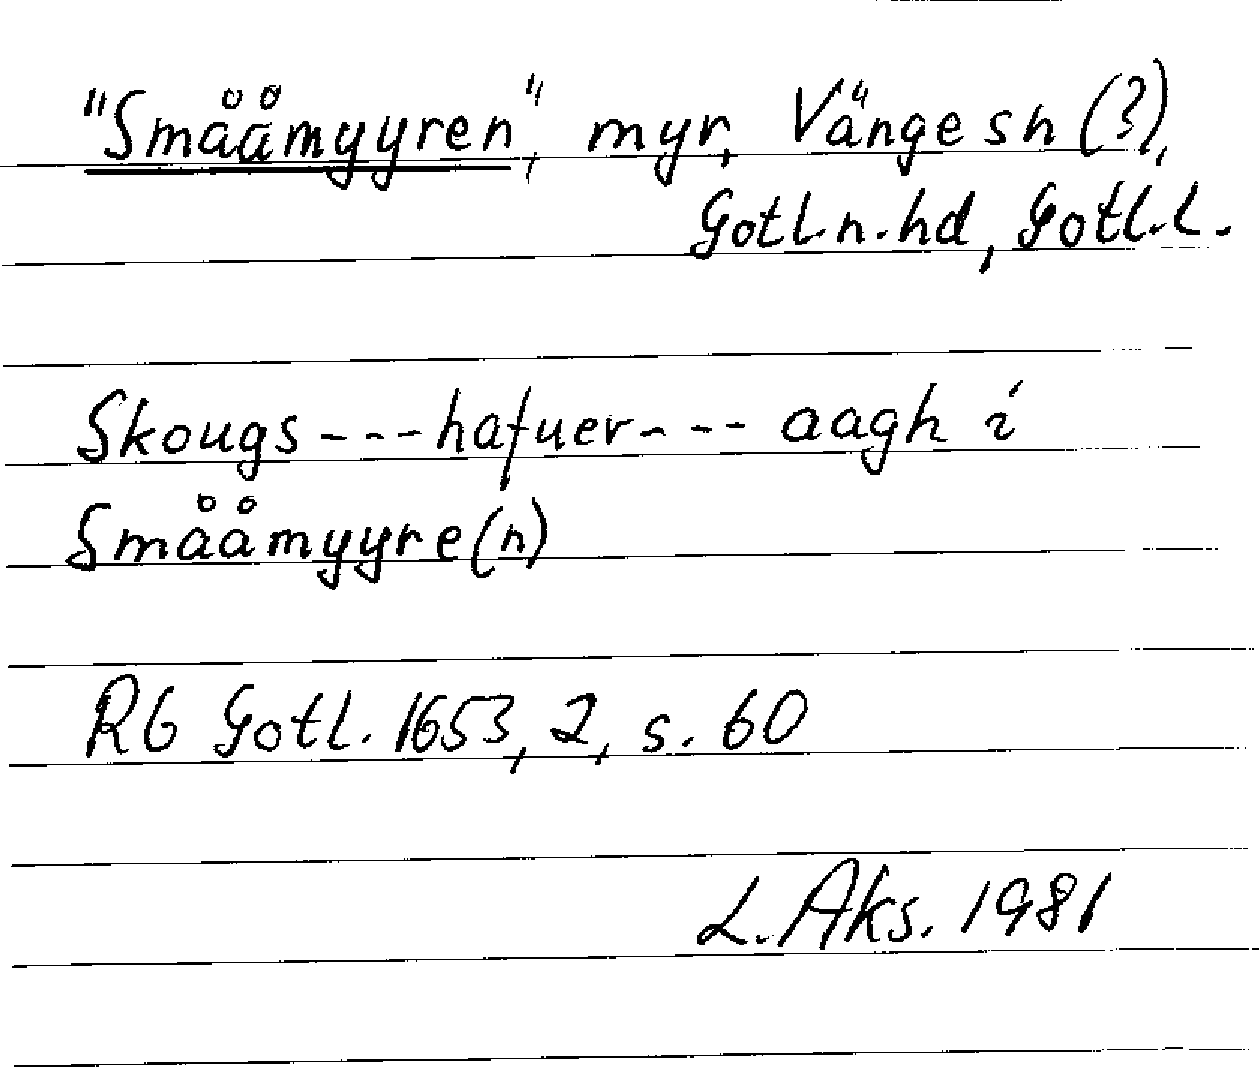 "Småämyyren", myr, Vänge sn (?),
Gotl.n.hd, Gotl.l.
Skougs --- hafuer --- aagh i
Smååmyyre(n)
RG Gotl. 1653, 2, s. 60
L. Aks. 1981